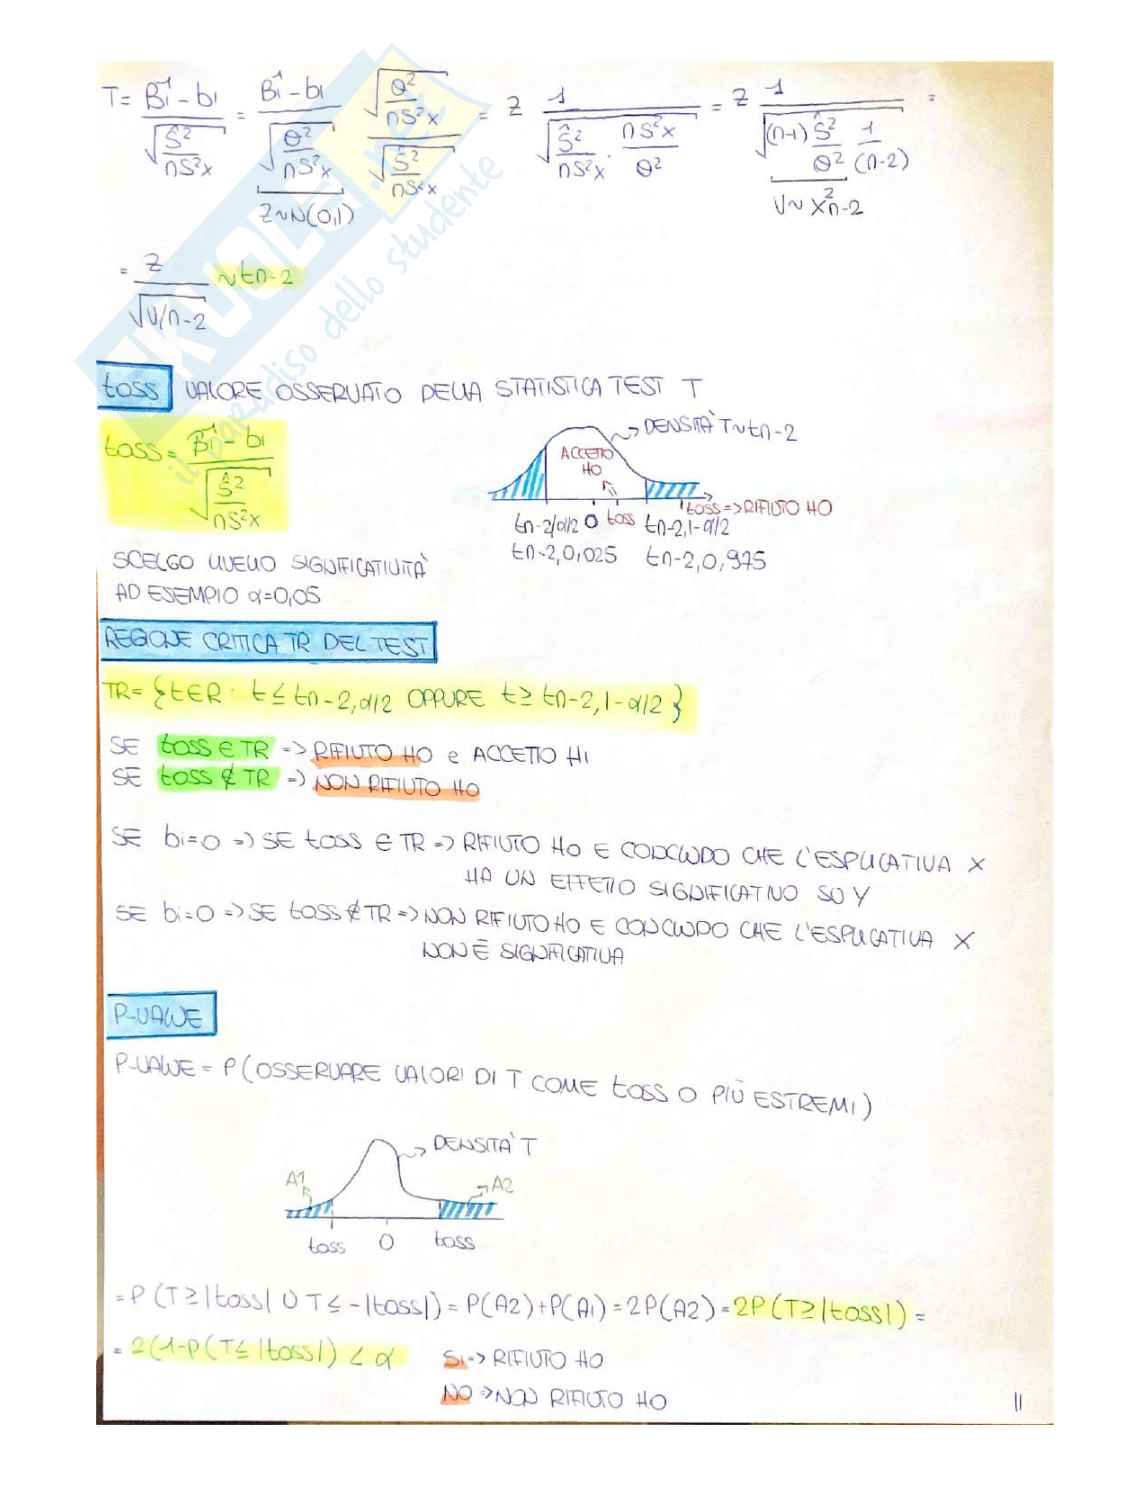 T = B̂1 - b1 / √(Ŝ² / nS²x) = B̂1 - b1 / √(θ² / nS²x) · √(θ² / nS²x) / √(Ŝ² / nS²x) = Z 1 / √(Ŝ² / nS²x · nS²x / θ²) = Z 1 / √((n-1) Ŝ² / θ² · 1 / (n-2)) =
Z~N(0,1)
V ~ X²n-2
= Z / √V/n-2 ~ tn-2
SKUOLA.net
il paradiso dello studente
toss VALORE OSSERVATO DELLA STATISTICA TEST T
toss = B̂1 - b1 / √(Ŝ² / nS²x)
DENSITÀ T~tn-2
ACCETTO
H0
toss => RIFIUTO H0
tn-2/α/2 0 toss tn-2,1-α/2
tn-2,0,025 tn-2,0,975
SCELGO LIVELLO SIGNIFICATIVITÀ
AD ESEMPIO α=0,05
REGIONE CRITICA TR DEL TEST
TR = {t∈R : t ≤ tn-2,α/2 OPPURE t ≥ tn-2,1-α/2}
SE toss ∈ TR => RIFIUTO H0 e ACCETTO H1
SE toss ∉ TR => NON RIFIUTO H0
SE b1=0 => SE toss ∈ TR => RIFIUTO H0 E CONCLUDO CHE L'ESPLICATIVA X
HA UN EFFETTO SIGNIFICATIVO SU Y
SE b1=0 => SE toss ∉ TR => NON RIFIUTO H0 E CONCLUDO CHE L'ESPLICATIVA X
NON È SIGNIFICATIVA
P-VALUE
P-VALUE = P(OSSERVARE VALORI DI T COME toss O PIÙ ESTREMI)
DENSITÀ T
A1
A2
toss 0 toss
= P(T ≥ |toss| U T ≤ -|toss|) = P(A2)+P(A1) = 2P(A2) = 2P(T≥|toss|) =
= 2(1-P(T≤ |toss|) < α SI -> RIFIUTO H0
NO => NON RIFIUTO H0
11